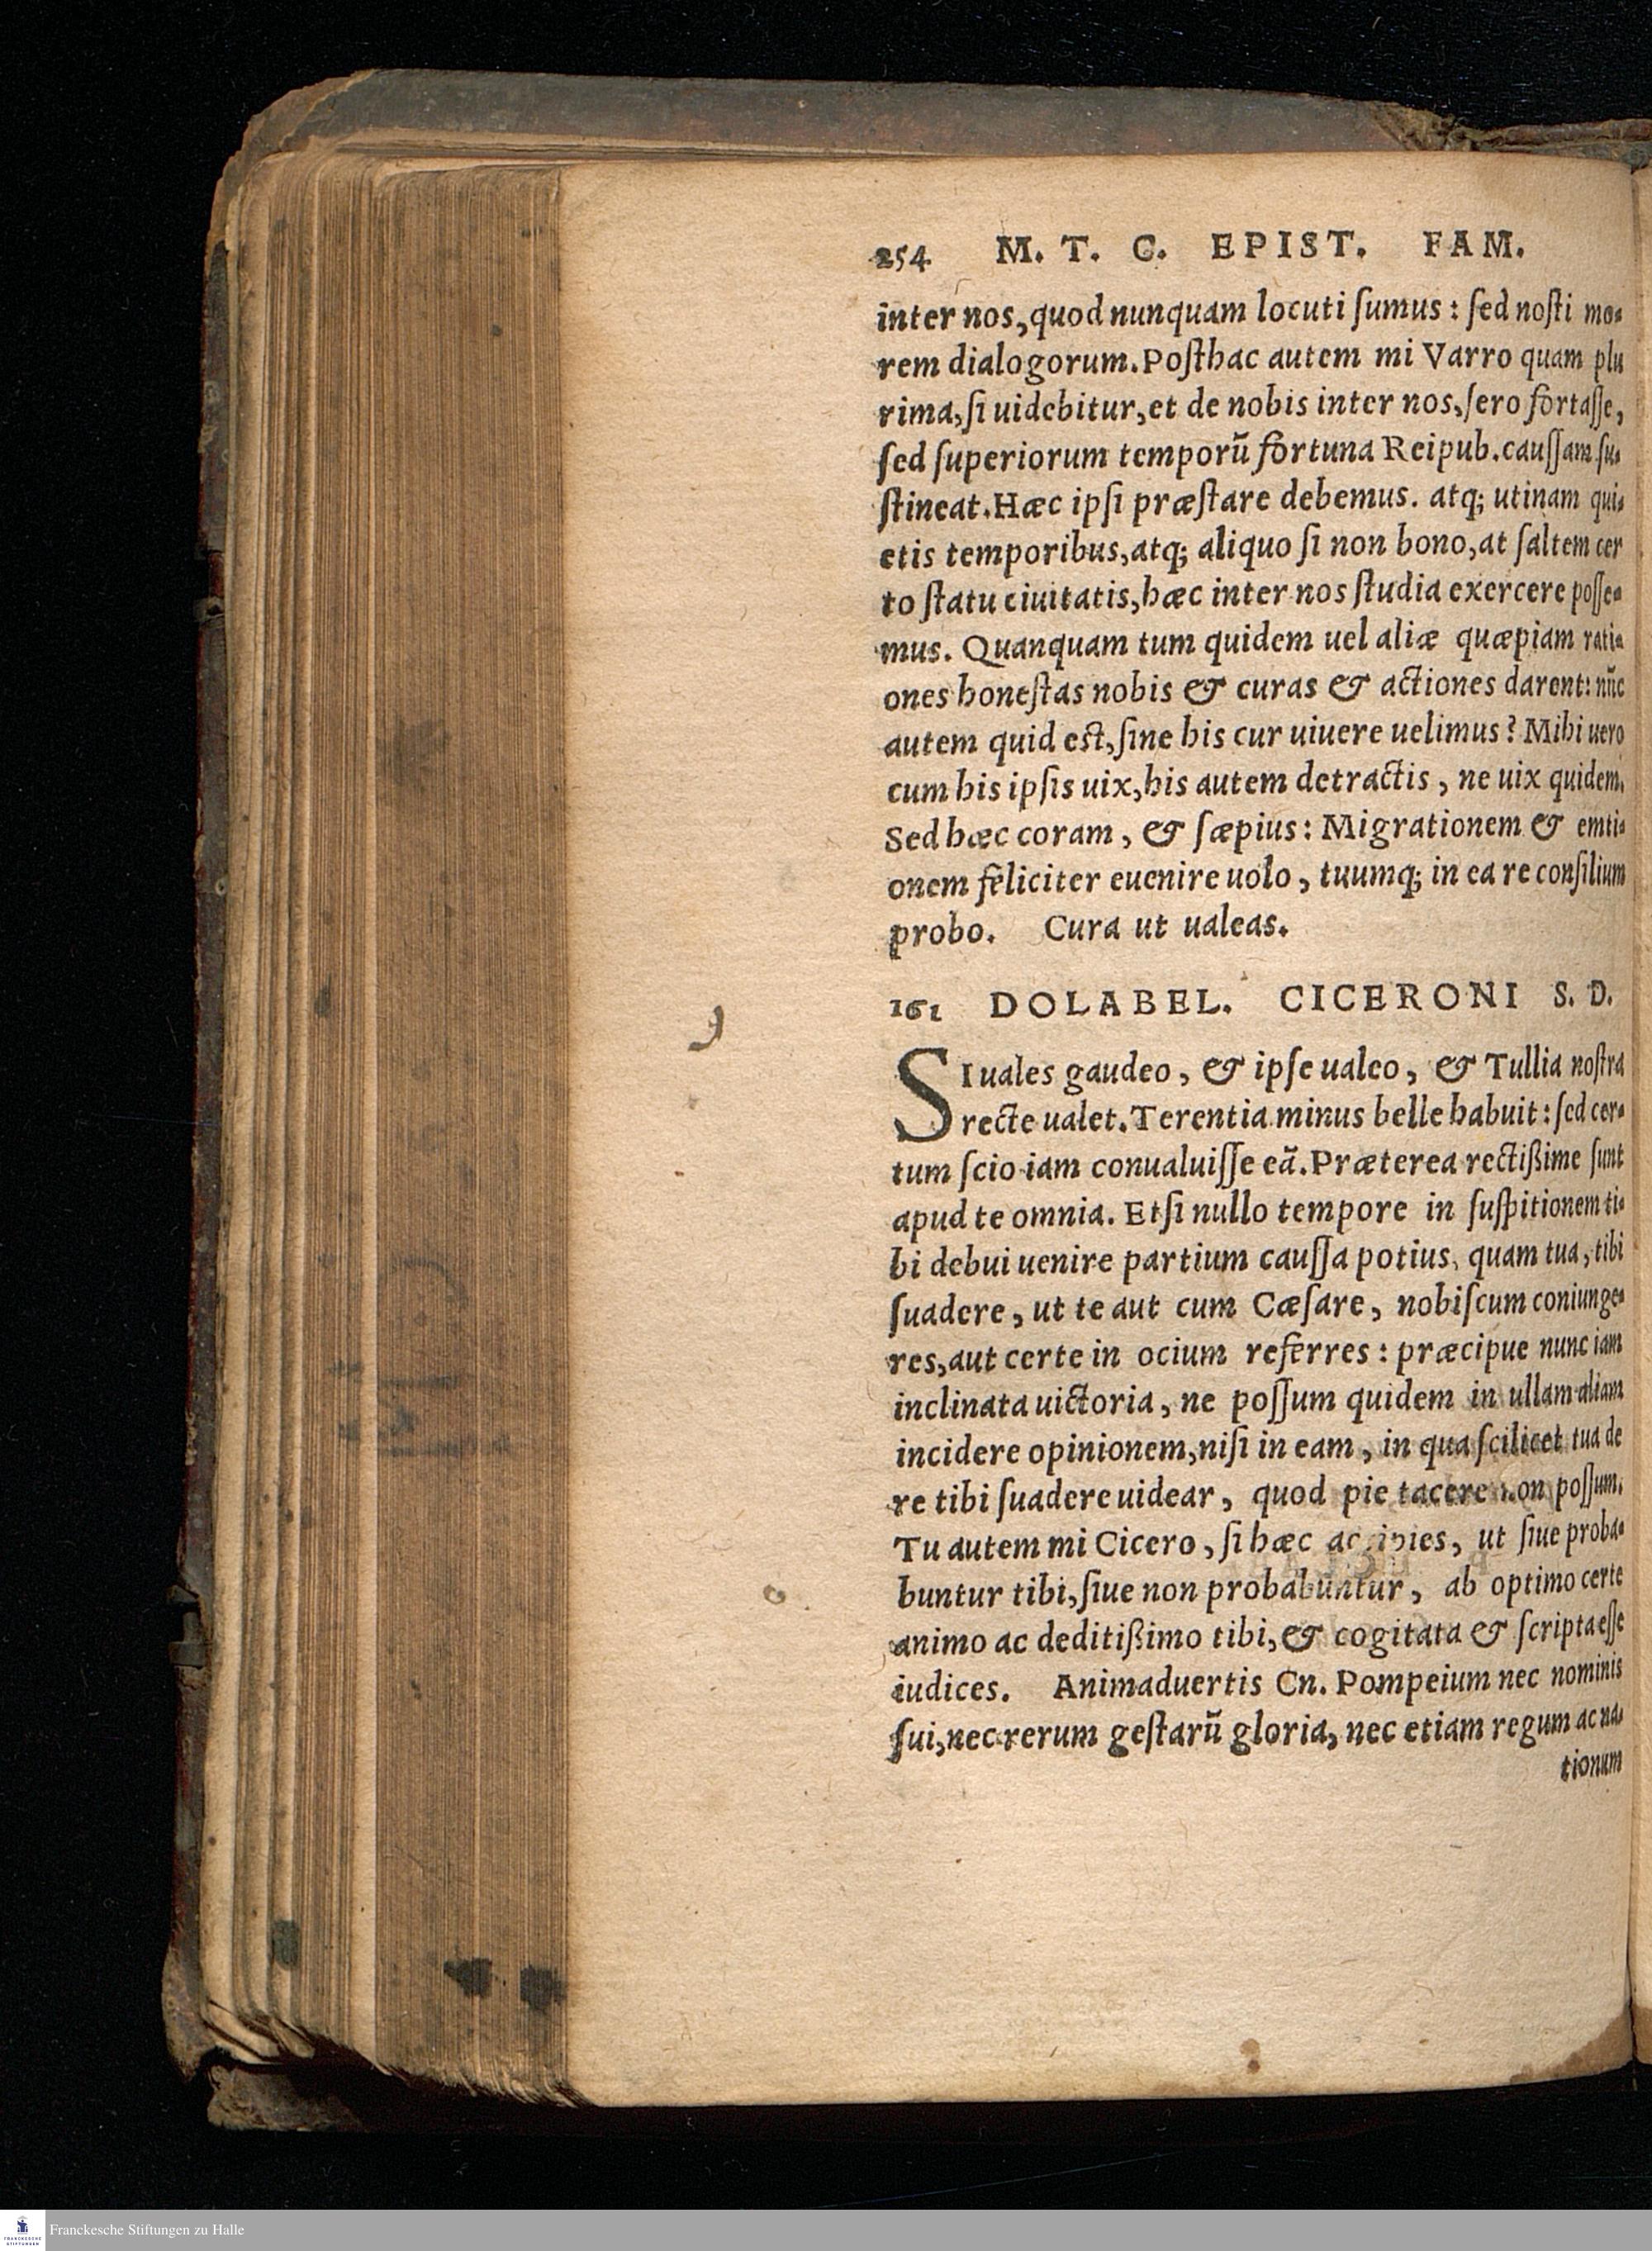 254 M. T. C. EPIST. FAM.
inter nos, quod nunquam locuti ſumus: ſed noſti mo-
rem dialogorum. Poſthac autem mi Varro quam plu
rima, ſi uidebitur, et de nobis inter nos, ſero fortaſſe,
ſed ſuperiorum temporũ fortuna Reipub. cauſſam ſu-
ſtineat. Hæc ipſi præſtare debemus. atq; utinam qui-
etis temporibus, atq; aliquo ſi non bono, at ſaltem cer
to ſtatu ciuitatis, hæc inter nos ſtudia exercere poſſe-
mus. Quanquam tum quidem uel aliæ quæpiam rati-
ones honeſtas nobis & curas & actiones darent: nũc
autem quid eſt, ſine his cur uiuere uelimus? Mihi uero
cum his ipſis uix, his autem detractis, ne uix quidem.
Sed hæc coram, & ſæpius: Migrationem & emti-
onem feliciter euenire uolo, tuumq; in ea re conſilium
probo. Cura ut ualeas.
161 DOLABEL. CICERONI S. D.
SI uales gaudeo, & ipſe ualeo, & Tullia noſtra
recte ualet. Terentia minus belle habuit: ſed cer-
tum ſcio iam conualuiſſe eã. Præterea rectißime ſunt
apud te omnia. Etſi nullo tempore in ſuſpitionem ti-
bi debui uenire partium cauſſa potius, quam tua, tibi
ſuadere, ut te aut cum Cæſare, nobiſcum coniunge-
res, aut certe in ocium referres: præcipue nunc iam
inclinata uictoria, ne poſſum quidem in ullam aliam
incidere opinionem, niſi in eam, in qua ſcilicet tua de
re tibi ſuadere uidear, quod pie tacere non poſſum.
Tu autem mi Cicero, ſi hæc accipies, ut ſiue proba-
buntur tibi, ſiue non probabuntur, ab optimo certe
animo ac deditißimo tibi, & cogitata & ſcripta eſſe
iudices. Animaduertis Cn. Pompeium nec nominis
ſui, nec rerum geſtarũ gloria, nec etiam regum ac na-
tionum
Franckesche Stiftungen zu Halle